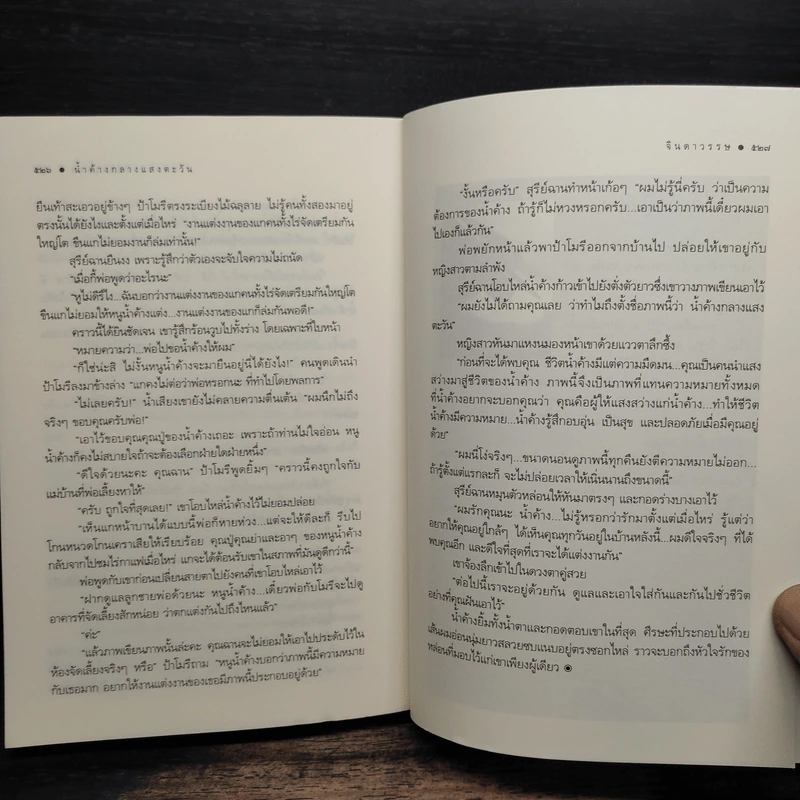 ๕๒๖ ● น้ำค้างกลางแสงตะวัน
ยืนเท้าสะเอวอยู่ข้างๆ ป้าโมรีตรงระเบียงไม้ฉลุลาย ไม่รู้คนทั้งสองมาอยู่
ตรงนั้นได้ยังไงและตั้งแต่เมื่อไหร่ “งานแต่งงานของแกคนทั้งไร่จัดเตรียมกัน
ใหญ่โต ขืนแกไม่ยอมงานก็ล่มเท่านั้น!”
สุรีย์ฉานยืนงง เพราะรู้สึกว่าตัวเองจะจับใจความไม่ถนัด
“เมื่อกี้พ่อพูดว่าอะไรนะ”
“หูไม่ดีรึไง...ฉันบอกว่างานแต่งงานของแกคนทั้งไร่จัดเตรียมกันใหญ่โต
ขืนแกไม่ยอมให้หนูน้ำค้างแต่ง...งานแต่งงานของแกก็ล่มกันพอดี!”
คราวนี้ได้ยินชัดเจน เขารู้สึกร้อนวูบไปทั้งร่าง โดยเฉพาะที่ใบหน้า
“หมายความว่า...พ่อไปขอน้ำค้างให้ผม”
“ก็ใช่น่ะสิ ไม่งั้นหนูน้ำค้างจะมายืนอยู่นี่ได้ยังไง!” คนพูดเดินนำ
ป้าโมรีลงมาข้างล่าง “แกคงไม่ต่อว่าพ่อหรอกนะ ที่ทำไปโดยพลการ”
“ไม่เลยครับ!” น้ำเสียงเขายังไม่คลายความตื่นเต้น “ผมนึกไม่ถึง
จริงๆ ขอบคุณครับพ่อ!”
“เอาไว้ขอบคุณคุณปู่ของน้ำค้างเถอะ เพราะถ้าท่านไม่ใจอ่อน หนู
น้ำค้างก็คงไม่สบายใจถ้าจะต้องเลือกฝ่ายใดฝ่ายหนึ่ง”
“ดีใจด้วยนะคะ คุณฉาน” ป้าโมรีพูดยิ้มๆ “คราวนี้คงถูกใจกับ
แม่บ้านที่พ่อเลี้ยงหาให้”
“ครับ ถูกใจที่สุดเลย!” เขาโอบไหล่น้ำค้างไว้ไม่ยอมปล่อย
“เห็นแกหน้าบานได้แบบนี้พ่อก็หายห่วง...แต่จะให้ดีละก็ รีบไป
โกนหนวดโกนเคราเสียให้เรียบร้อย คุณปู่คุณย่าและอาๆ ของหนูน้ำค้าง
กลับจากไปชมไร่กาแฟเมื่อไหร่ แกจะได้ต้อนรับเขาในสภาพที่มันดูดีกว่านี้”
พ่อพูดกับเขาก่อนเปลี่ยนสายตาไปยังคนที่เขาโอบไหล่เอาไว้
“ฝากดูแลลูกชายพ่อด้วยนะ หนูน้ำค้าง...เดี๋ยวพ่อกับโมรีจะไปดู
อาคารที่จัดเลี้ยงสักหน่อย ว่าตกแต่งกันไปถึงไหนแล้ว”
“ค่ะ”
“แล้วภาพเขียนภาพนั้นล่ะคะ คุณฉานจะไม่ยอมให้เอาไปประดับไว้ใน
ห้องจัดเลี้ยงจริงๆ หรือ” ป้าโมรีถาม “หนูน้ำค้างบอกว่าภาพนี้มีความหมาย
กับเธอมาก อยากให้งานแต่งงานของเธอมีภาพนี้ประกอบอยู่ด้วย”
จินดาวรรษ ● ๕๒๗
“งั้นหรือครับ” สุรีย์ฉานทำหน้าเก้อๆ “ผมไม่รู้นี่ครับ ว่าเป็นความ
ต้องการของน้ำค้าง ถ้ารู้ก็ไม่หวงหรอกครับ...เอาเป็นว่าภาพนี้เดี๋ยวผมเอา
ไปเองก็แล้วกัน”
พ่อพยักหน้าแล้วพาป้าโมรีออกจากบ้านไป ปล่อยให้เขาอยู่กับ
หญิงสาวตามลำพัง
สุรีย์ฉานโอบไหล่น้ำค้างก้าวเข้าไปยังตั่งตัวยาวซึ่งเขาวางภาพเขียนเอาไว้
“ผมยังไม่ได้ถามคุณเลย ว่าทำไมถึงตั้งชื่อภาพนี้ว่า น้ำค้างกลางแสง
ตะวัน”
หญิงสาวหันมาแหงนมองหน้าเขาด้วยแววตาลึกซึ้ง
“ก่อนที่จะได้พบคุณ ชีวิตน้ำค้างมีแต่ความมืดมน...คุณเป็นคนนำแสง
สว่างมาสู่ชีวิตของน้ำค้าง ภาพนี้จึงเป็นภาพที่แทนความหมายทั้งหมด
ที่น้ำค้างอยากจะบอกคุณว่า คุณคือผู้ให้แสงสว่างแก่น้ำค้าง...ทำให้ชีวิต
น้ำค้างมีความหมาย...น้ำค้างรู้สึกอบอุ่น เป็นสุข และปลอดภัยเมื่อมีคุณอยู่
ด้วย”
“ผมนี่โง่จริงๆ...ขนาดนอนดูภาพนี้ทุกคืนยังตีความหมายไม่ออก...
ถ้ารู้ตั้งแต่แรกละก็ จะไม่ปล่อยเวลาให้เนิ่นนานถึงขนาดนี้”
สุรีย์ฉานหมุนตัวหล่อนให้หันมาตรงๆ และกอดร่างบางเอาไว้
“ผมรักคุณนะ น้ำค้าง...ไม่รู้หรอกว่ารักมาตั้งแต่เมื่อไหร่ รู้แต่ว่า
อยากให้คุณอยู่ใกล้ๆ ได้เห็นคุณทุกวันอยู่ในบ้านหลังนี้...ผมดีใจจริงๆ ที่ได้
พบคุณอีก และดีใจที่สุดที่เราจะได้แต่งงานกัน”
เขาจ้องลึกเข้าไปในดวงตาคู่สวย
“ต่อไปนี้เราจะอยู่ด้วยกัน ดูแลและเอาใจใส่กันและกันไปชั่วชีวิต
อย่างที่คุณฝันเอาไว้”
น้ำค้างยิ้มทั้งน้ำตาและกอดตอบเขาในที่สุด ศีรษะที่ประกอบไปด้วย
เส้นผมอ่อนนุ่มยาวสลวยซบแนบอยู่ตรงซอกไหล่ ราวจะบอกถึงหัวใจรักของ
หล่อนที่มอบไว้แก่เขาเพียงผู้เดียว